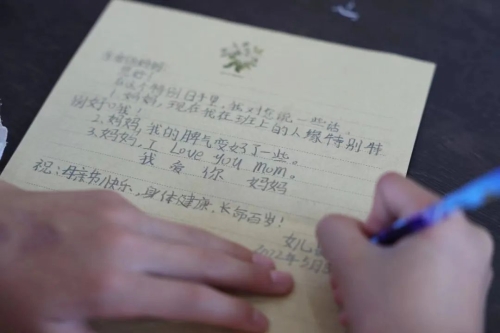 亲爱的妈妈:
您好!
在这个特别日子里,我对您说一些话,
1.妈妈,现在我在班上的人缘特别特
别好哦!
2.妈妈,我的脾气变好了一些。
3.妈妈,I Love you mom。
我 爱 你 妈妈
祝:母亲节快乐,身体健康,长命百岁!
女儿
2022年5月